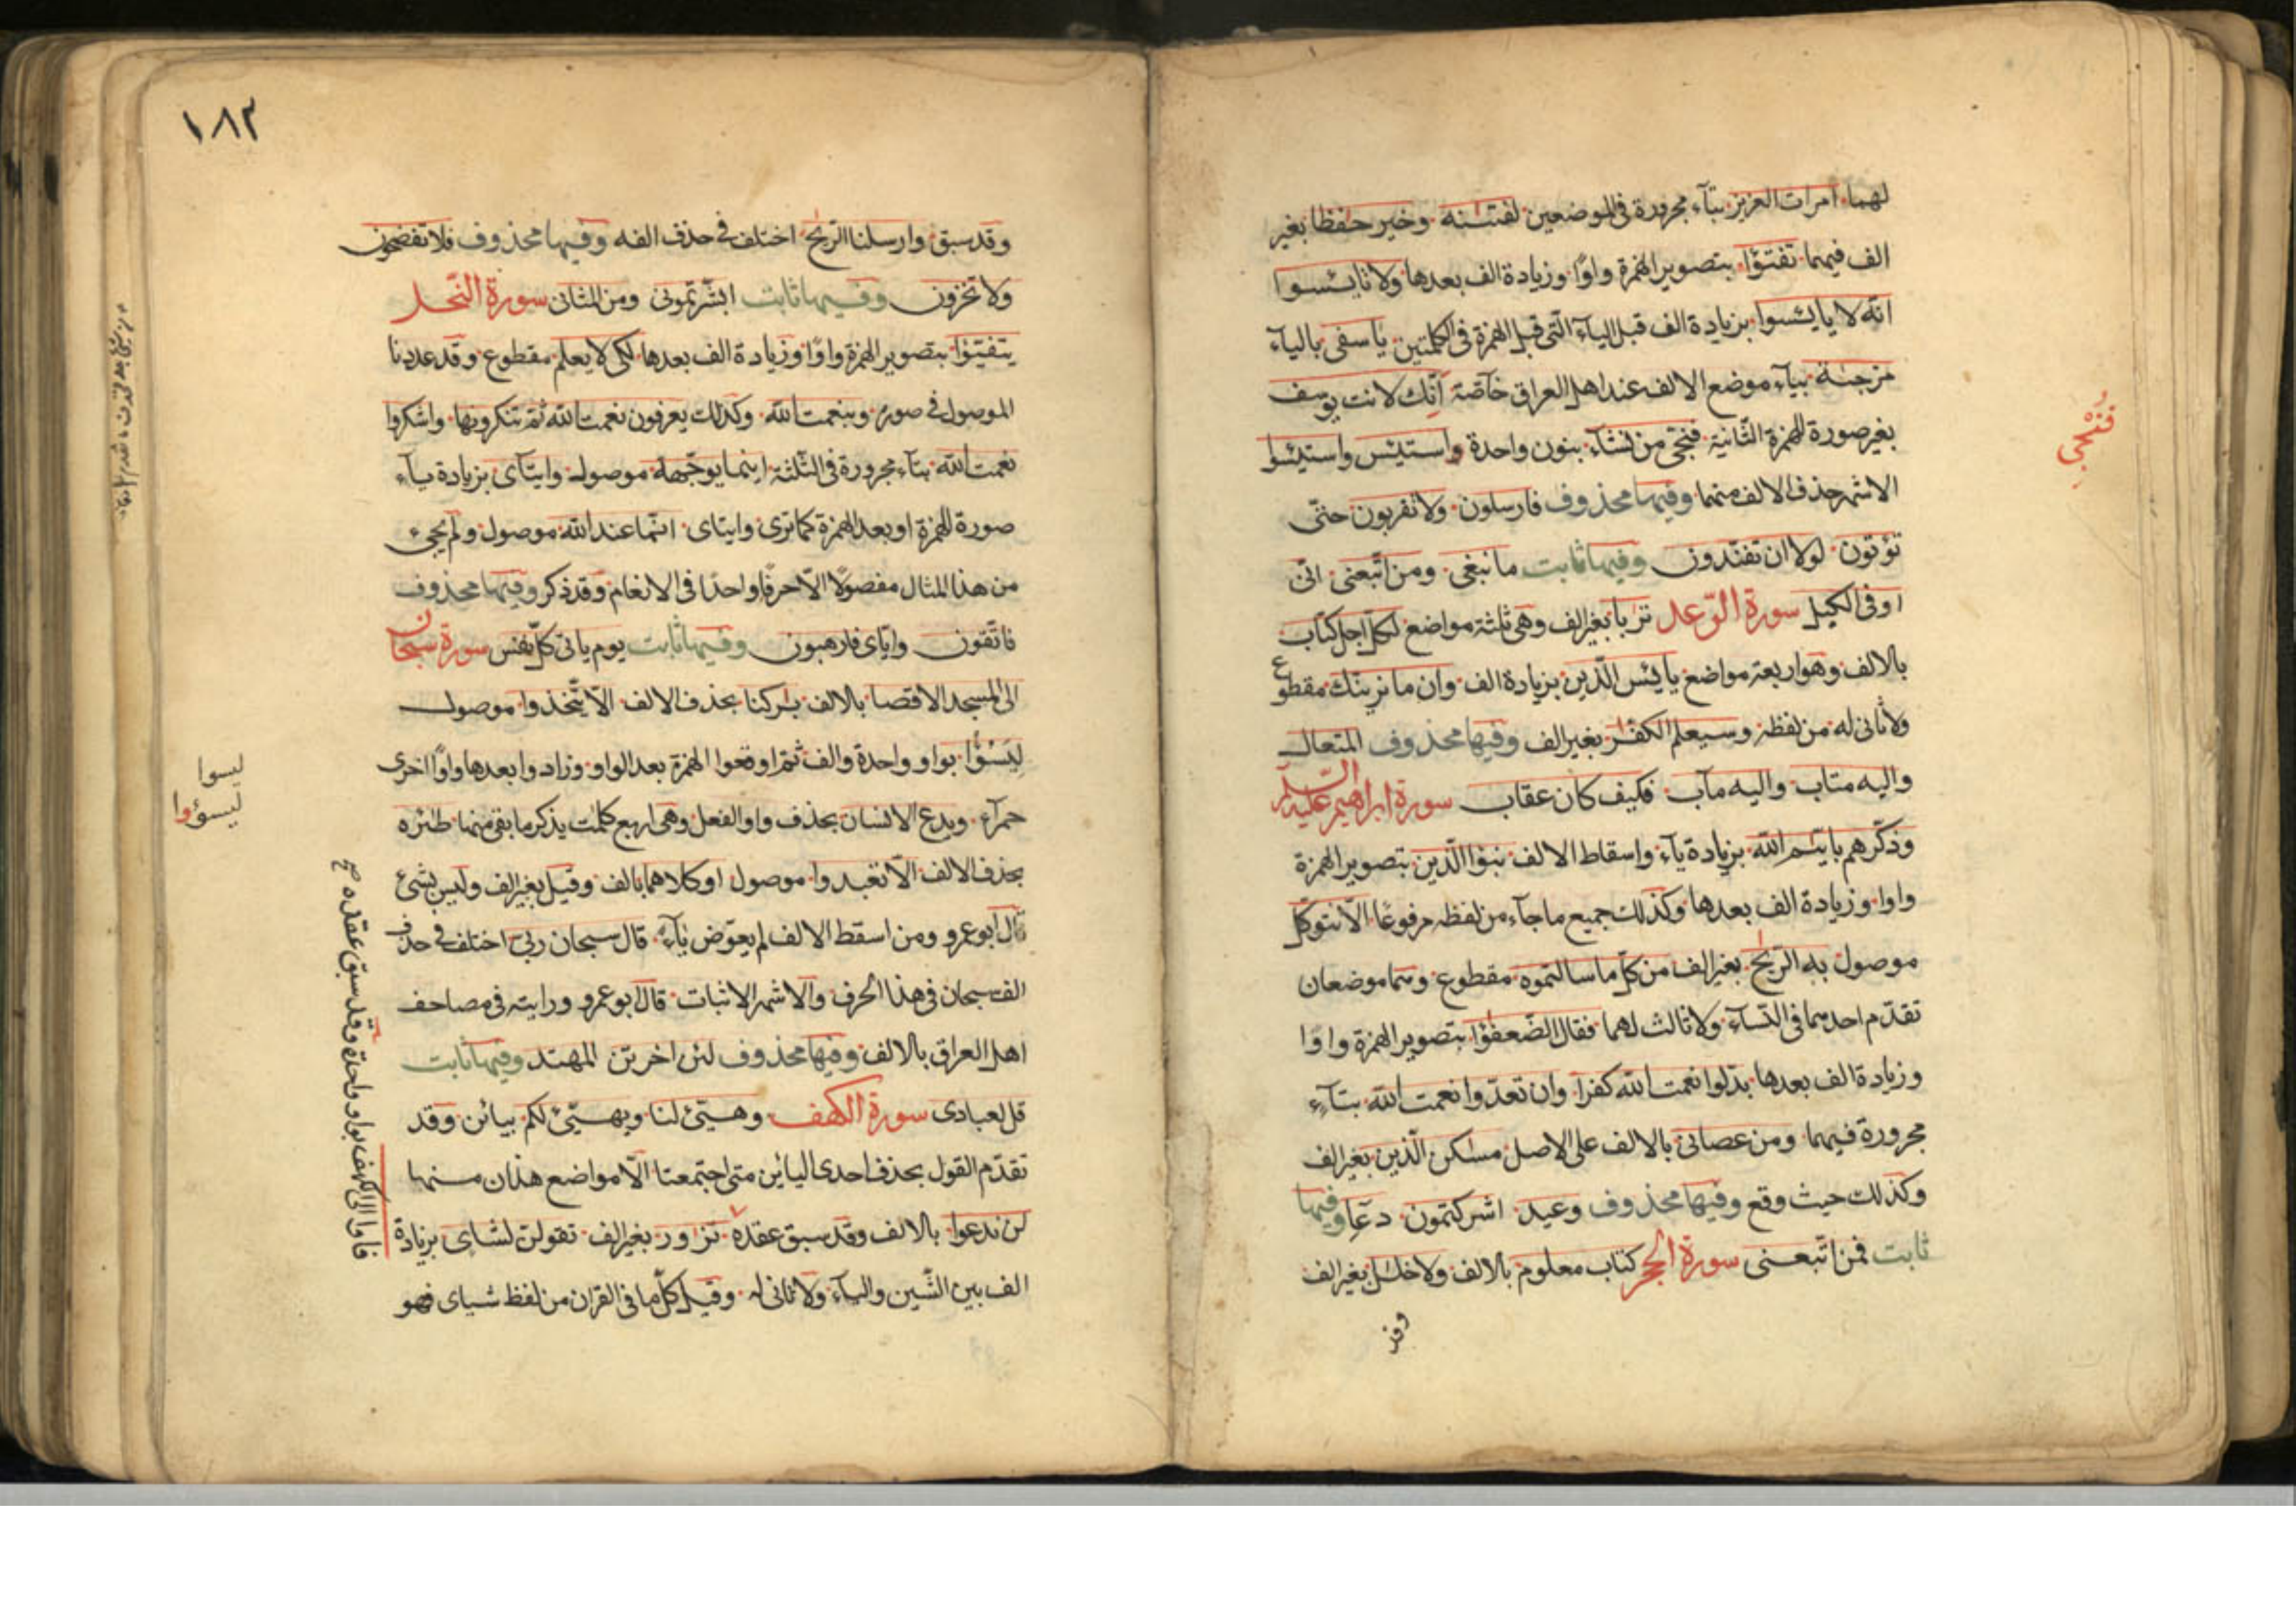 لهما امرات العزيز بتاء مجرورة في الموضعين لفتنه وخير حفظا بغير
الف فيهما تفتؤا بتصوير الهمزة واوا وزيادة الف بعدها ولا تايئسوا
انه لا يايئسوا بزيادة الف قبل الياء التي قبل الهمزة في الكلمتين ياسفى بالياء
مزجىة بياء موضع الالف عند اهل العراق خاصة ائنك لانت يوسف
بغير صورة للهمزة الثانية فنجي من نشاء بنون واحدة واستيئس واستيئسوا
الاشهر حذف الالف منهما وفيها محذوف فارسلون ولا تقربون حتى
تؤتون لولا ان تفندون وفيها ثابت ما نبغي ومن اتبعني اني
اوفي الكيل سورة الرعد تربا بغير الف وهي ثلثة مواضع لكل اجل كتاب
بالالف وهو اربعة مواضع يايئس الذين بزيادة الف وان ما نرينك مقطوع
ولا ثاني له من لفظه وسيعلم الكفر بغير الف وفيها محذوف المتعال
واليه متاب واليه مآب فكيف كان عقاب سورة ابراهيم عليه السلام
وذكرهم باييم الله بزيادة ياء واسقاط الالف نبؤا الذين بتصوير الهمزة
واوا وزيادة الف بعدها وكذلك جميع ما جاء من لفظه مرفوعا الا نتوكل
موصول به الريح بغير الف من كل ما سالتموه مقطوع وهما موضعان
تقدم احدهما في النساء ولا ثالث لهما فقال الضعفؤا بتصوير الهمزة واوا
وزيادة الف بعدها بدلوا نعمت الله كفرا وان تعدوا نعمت الله بتاء
مجرورة فيهما ومن عصاني بالالف على الاصل مسكن الذين بغير الف
وكذلك حيث وقع وفيها محذوف وعيد اشركتمون دعاء وفيها
ثابت فمن اتبعني سورة الحجر كتاب معلوم بالالف ولا خلل بغير الف
وقد
فننجي
١٨٢
وقد سبق وارسلنا الريح اختلف في حذف الفه وفيها محذوف فلا تفضحون
ولا تخزون وفيها ثابت ابشرتموني ومن المثاني سورة النحل
يتفيؤا بتصوير الهمزة واوا وزيادة الف بعدها لكي لا يعلم مقطوع وقد عددنا
الموصول في صوره وبنعمت الله وكذلك يعرفون نعمت الله ثم تنكرونها واشكروا
نعمت الله بتاء مجرورة في الثلثة اينما يوجهه موصول وايتاى بزيادة ياء
صورة للهمزة او بعد الهمزة كما ترى وايتاى انما عند الله موصول ولم يجيء
من هذا المثال مفصولا الا حرفا واحدا في الانعام وقد ذكر وفيها محذوف
فاتقون واياى فارهبون وفيها ثابت يوم ياتي كل نفس سورة سبحان
الى المسجد الاقصا بالالف بركنا بحذف الالف الا تتخذوا موصول
ليسؤا بواو واحدة والف ثم اوقعوا الهمزة بعد الواو وزادوا بعدها واوا اخرى
حمراء ويدع الانسان بحذف واو الفعل وهي اربع كلمت يذكر ما بقي منها طئره
بحذف الالف الا تعبدوا موصول او كلاهما بالف وقيل بغير الف وليس بشئ
قال ابو عمرو ومن اسقط الالف لم يعوض ياء قال سبحان ربي اختلف في حذف
الف سبحان في هذا الحرف والاشهر الاثبات قال ابو عمرو ورايته في مصاحف
اهل العراق بالالف وفيها محذوف لئن اخرتن المهتد وفيها ثابت
قل لعبادى سورة الكهف وهيئ لنا ويهيئ لكم بيائن وقد
تقدم القول بحذف احدى اليائين متى اجتمعتا الا مواضع هذان منها
لن ندعوا بالالف وقد سبق عقده تزاور بغير الف تقولن لشاى بزيادة
الف بين الشين والياء ولا ثاني له وقيل كل ما في القران من لفظ شياى فهو
ليسوا
ليسؤوا
فاوا الى الكهف بواو واحدة وقد سبق عقده صح